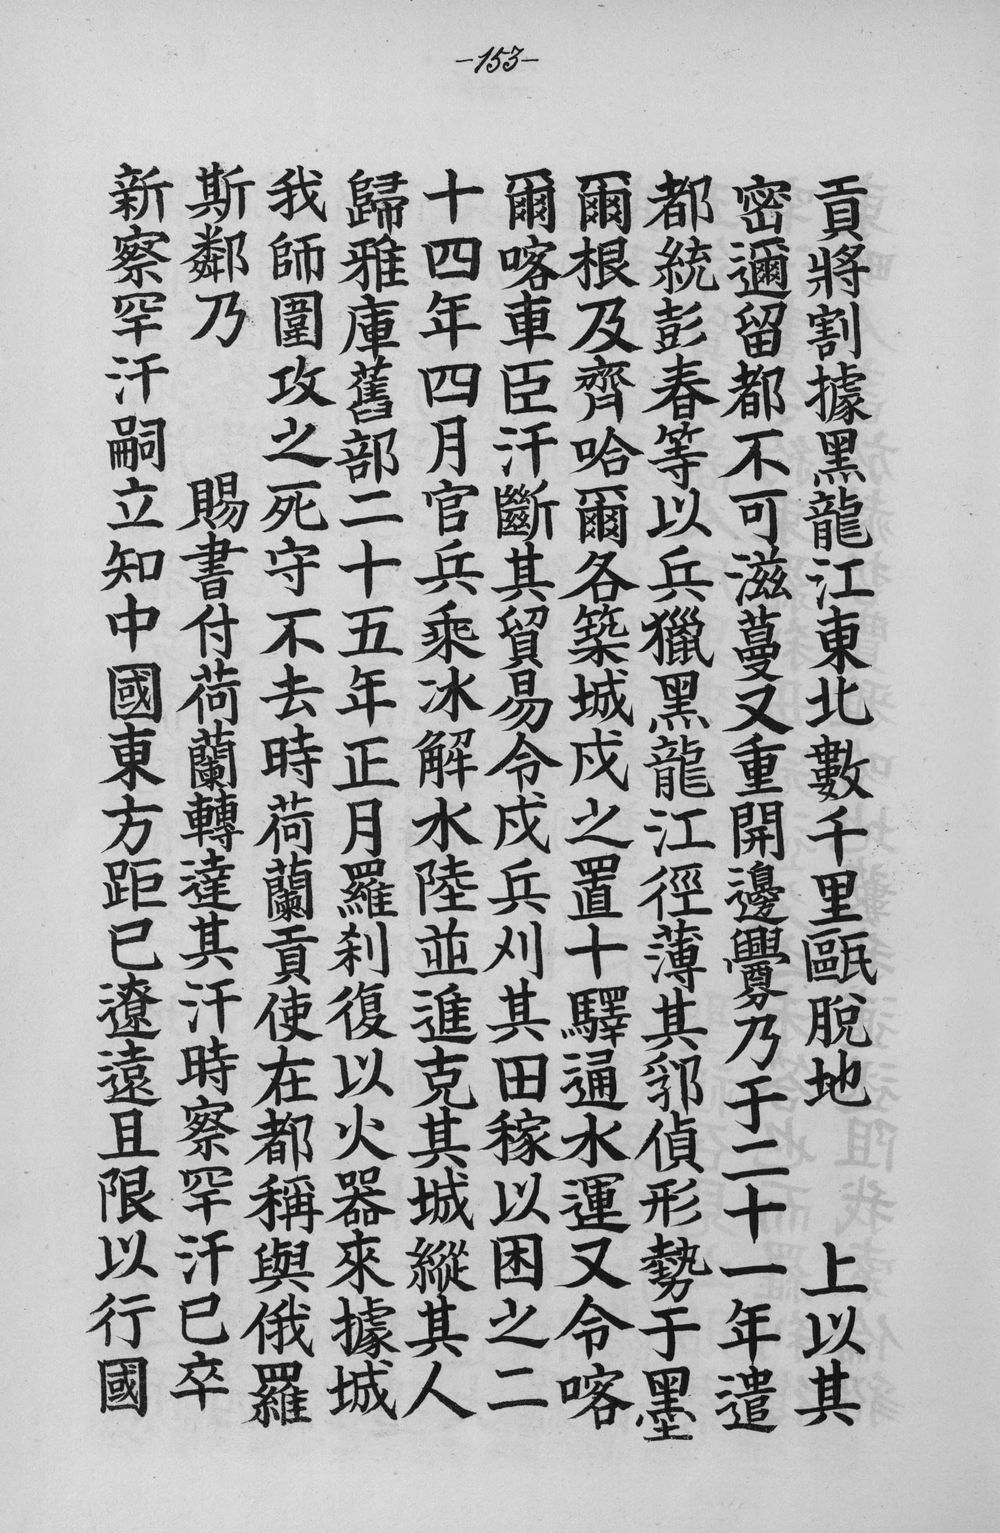 -153-
貢將割據黑龍江東北數千里甌脫地　上以其
密邇留都不可滋蔓又重開邊釁乃于二十一年遣
都統彭春等以兵獵黑龍江徑薄其郛偵形勢于墨
爾根及齊哈爾各築城戍之置十驛通水運又令喀
爾喀車臣汗斷其貿易令戍兵刈其田稼以困之二
十四年四月官兵乘冰解水陸並進克其城縱其人
歸雅庫舊部二十五年正月羅刹復以火器來據城
我師圍攻之死守不去時荷蘭貢使在都稱與俄羅
斯鄰乃　賜書付荷蘭轉達其汗時察罕汗已卒
新察罕汗嗣立知中國東方距已遼遠且限以行國